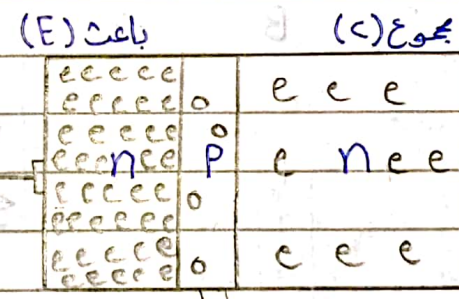 مجموع (C) باعث (E)
e e e e e
e e e e e o e e e
e e e e e o
e e e n e e P e n e e
e e e e e o
e e e e e e
e e e e e
e e e e e o e e e